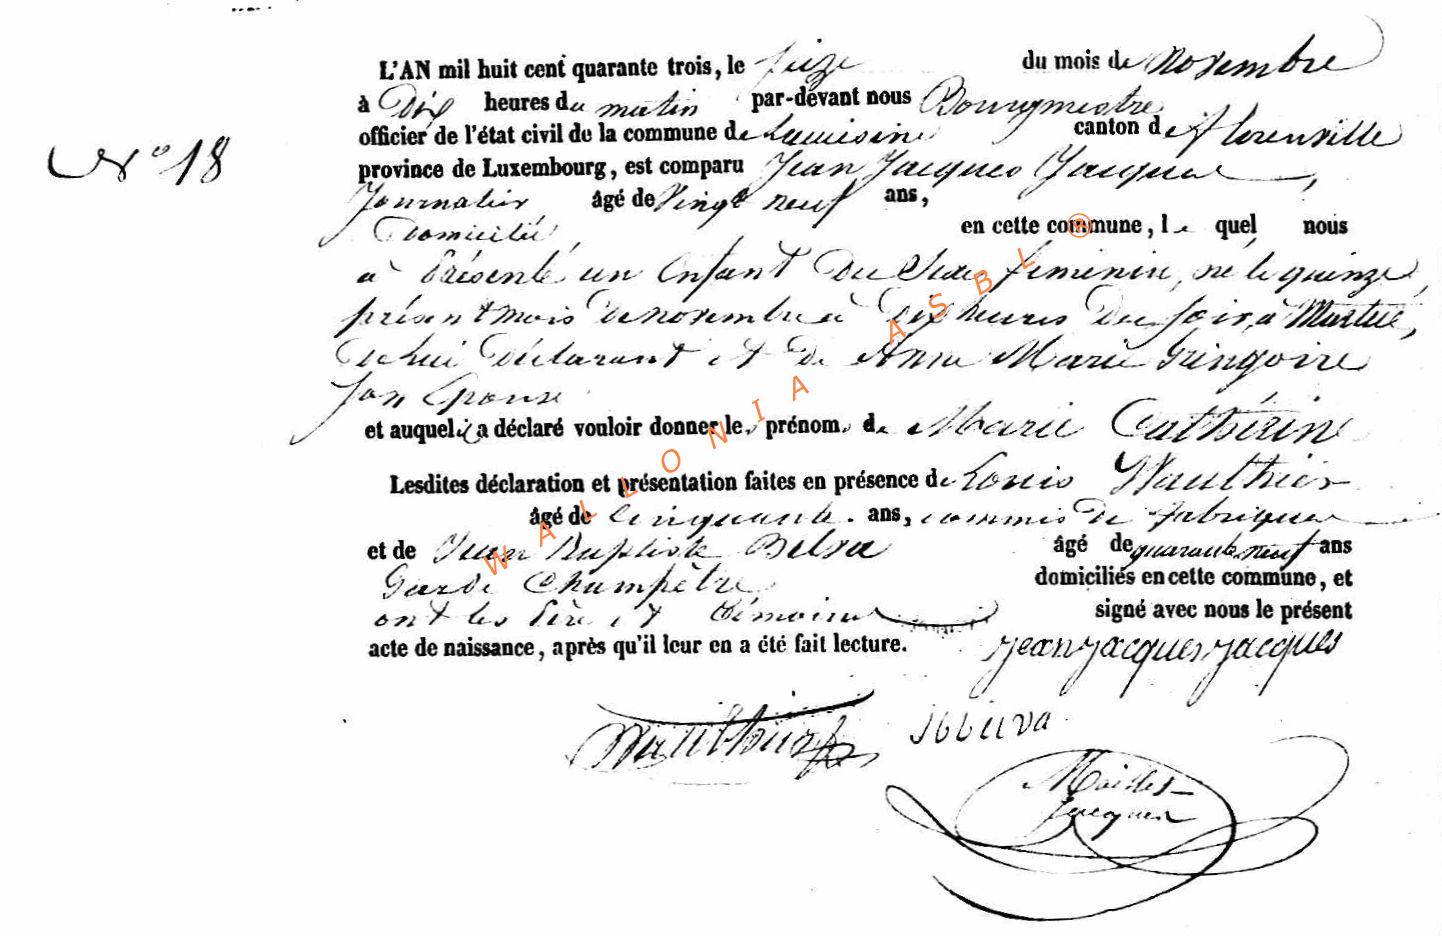 L'AN mil huit cent quarante trois, le seize du mois de novembre
à Dix heures du matin par-devant nous Bourgmestre
officier de l'état civil de la commune de canton de florenville
N° 18
province de Luxembourg, est comparu Jean Jacques Jacques,
Journalier, âgé de vingt neuf ans,
Domicilié, en cette commune, le quel nous
à Présenté un Enfant Du Sexe feminin, né le quinze
présent mois de novembre à Dix heures Du soir, à Martué,
De lui Déclarant et De Anne Marie Gringoire
son Epouse
et auquel il a déclaré vouloir donner les prénoms de Marie Cathérine
Lesdites déclaration et présentation faites en présence de Louis Wauthier
âgé de cinquante ans, commis De fabrique
et de Jean Baptiste âgé de quarante neuf ans
Garde Champêtre domiciliés en cette commune, et
ont les Père et témoins signé avec nous le présent
acte de naissance, après qu'il leur en a été fait lecture.
jean jacques jacques
Wauthier
Jacques
WALLONIA ASBL ®